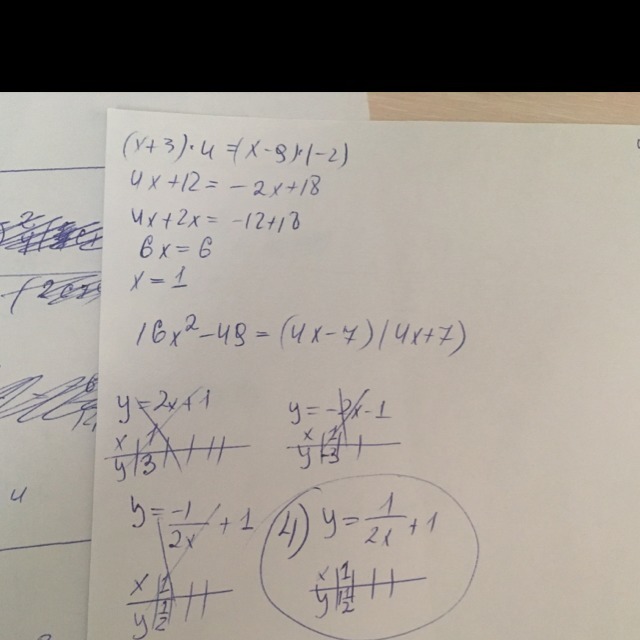 (x+3)·4=(x-9)·(-2)
4x+12=-2x+18
4x+2x=-12+18
6x=6
x=1
16x²-49=(4x-7)(4x+7)
y=2x+1
x 1
y 3
y=-2x-1
x 1
y -3
y=-1/2x+1
x 1
y 1/2
4) y=1/2x+1
x 1
y 1/2
4